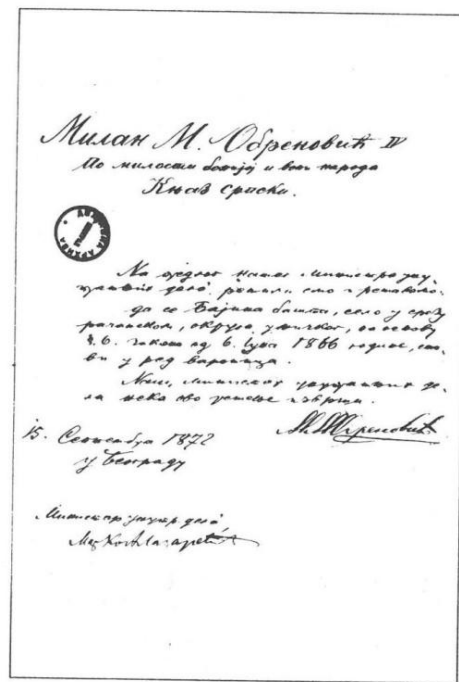 Милан М. Обреновић IV
По милости божијој и вољи народа
Књаз српски.
На предлог нашег министра уну-
да се Бајина башта, село у срезу
рачанском, округа ужичког, на основу
§. 6. закона од 6. Јуна 1866 године, ста-
ви у ред варошица.
Наш министар унутрашњих де-
ла нека ово решење изврши.
15. Септембра 1872
у Београду
М. М. Обреновић
Министар унутр. дела,
АРХИВА